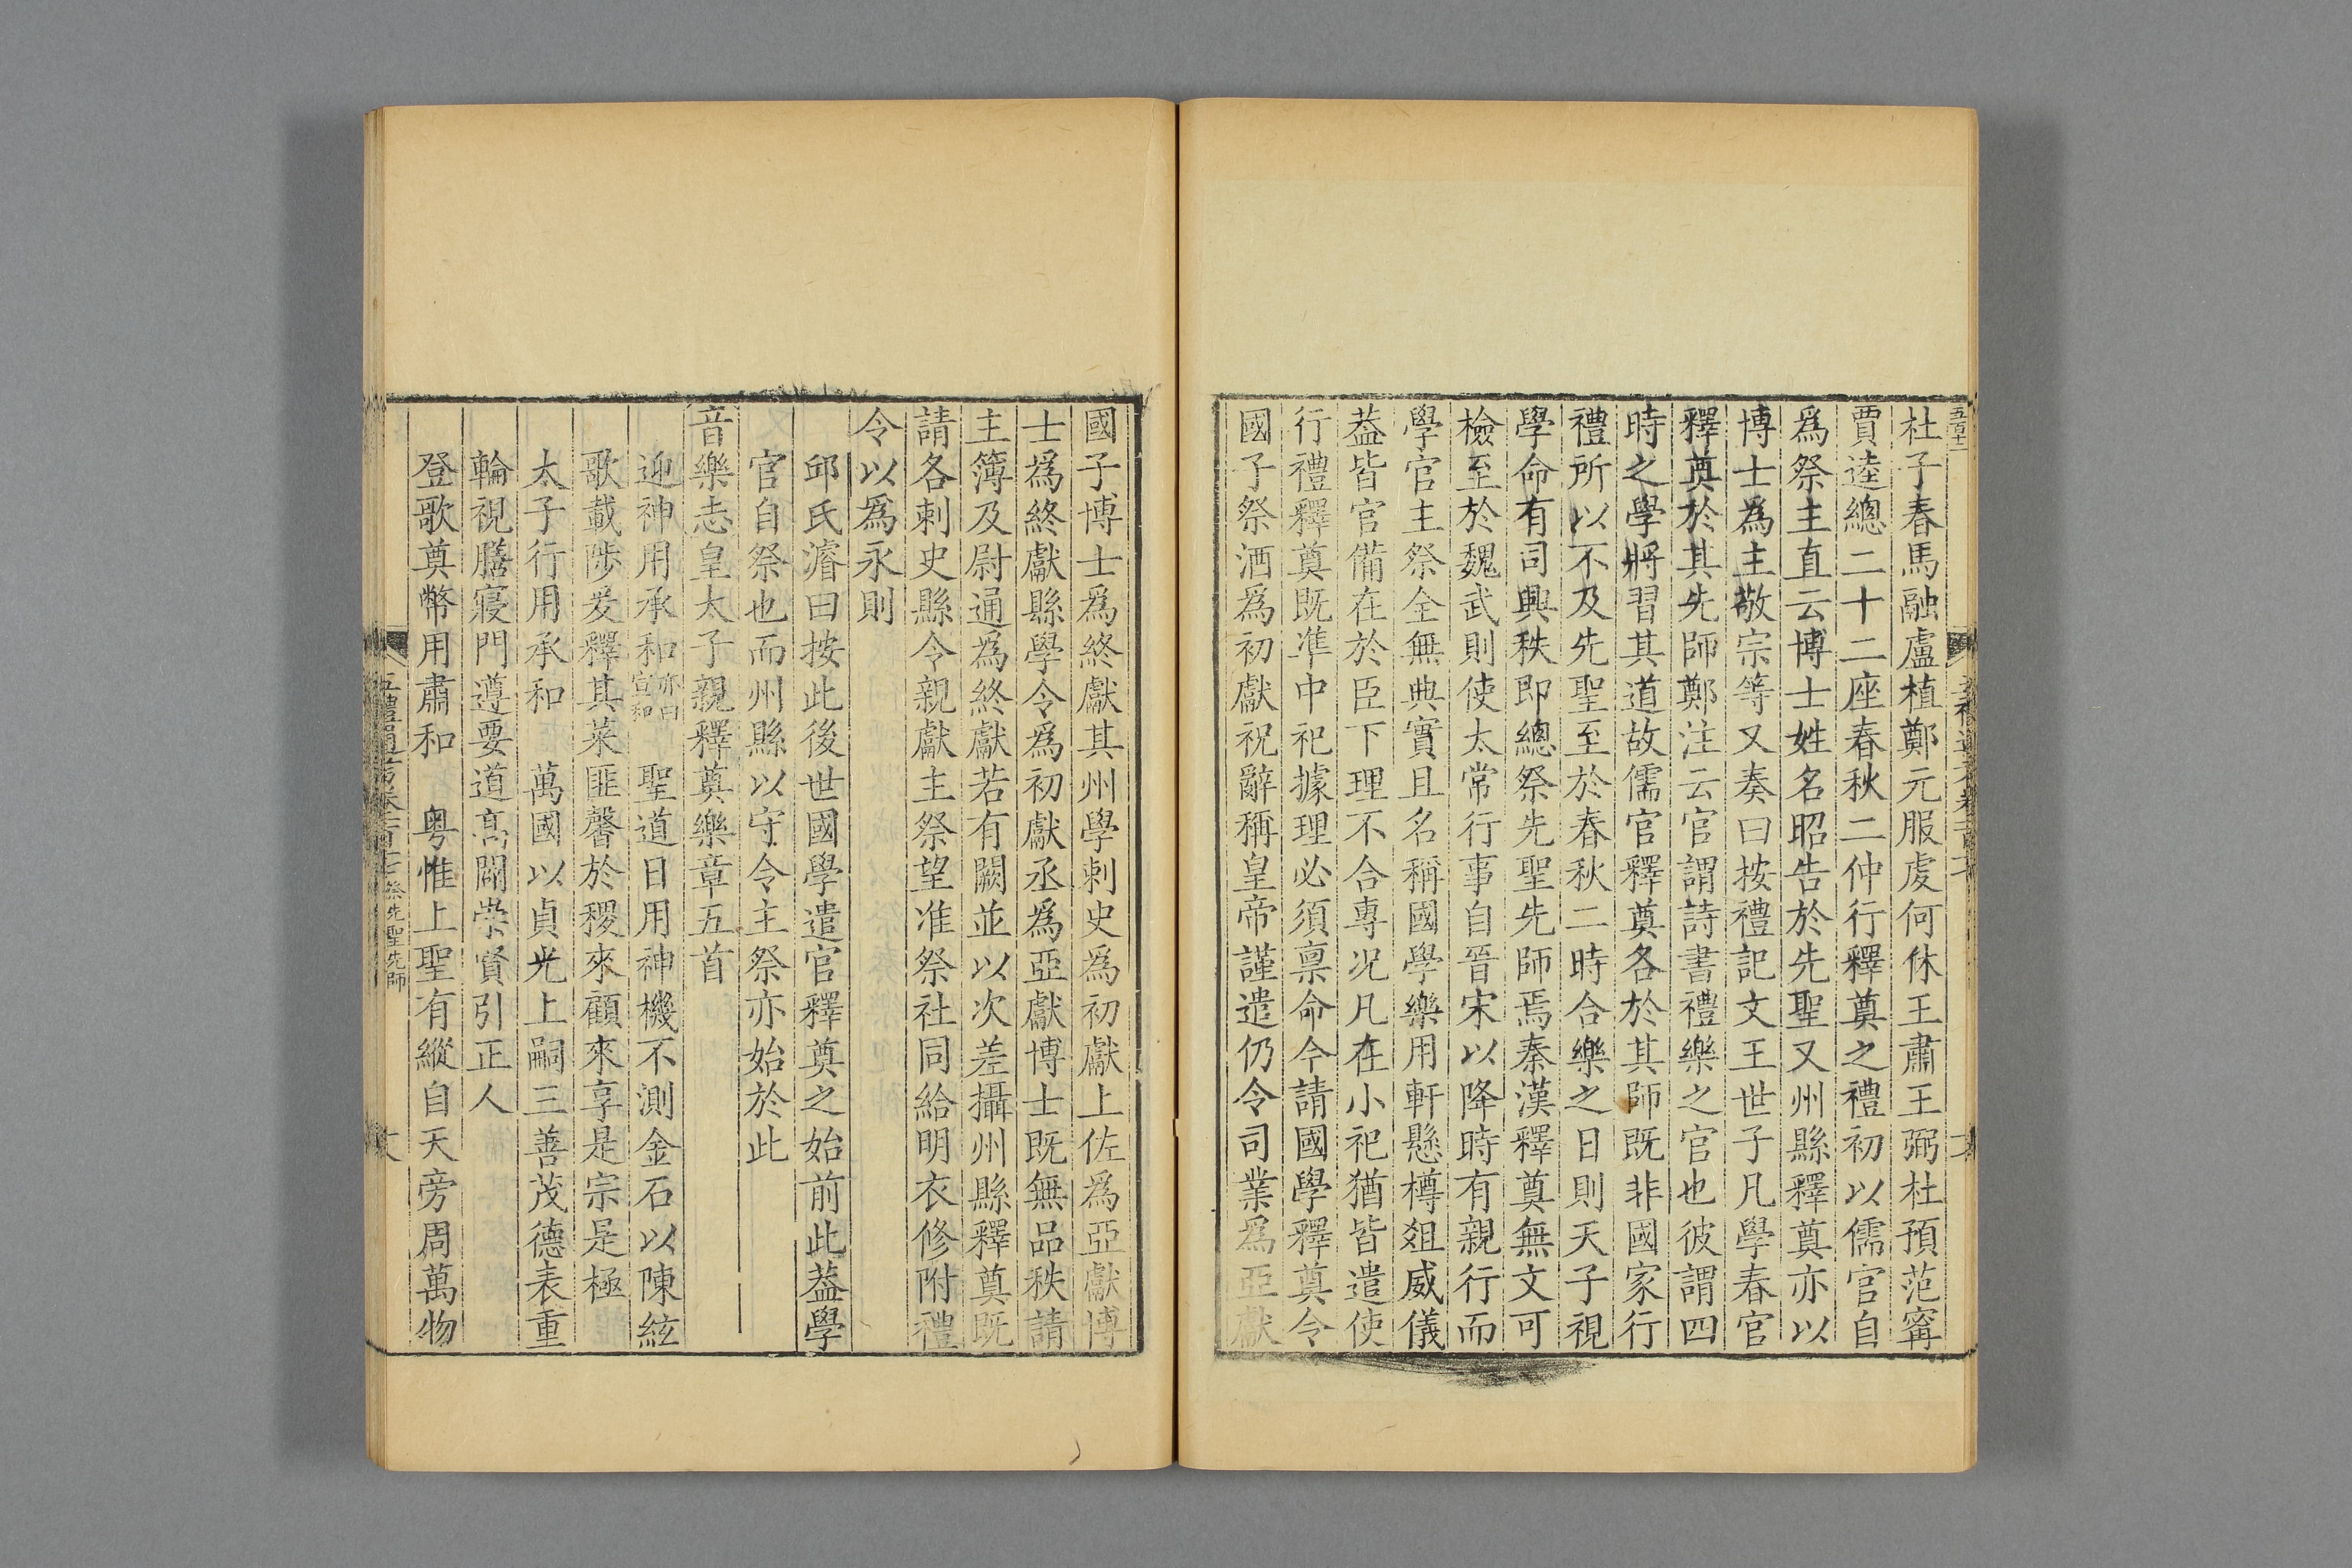 五百十一
杜子春馬融盧植鄭元服虔何休王肅王弼杜預范甯
賈逵總二十二座春秋二仲行釋奠之禮初以儒官自
爲祭主直云博士姓名昭告於先聖又州縣釋奠亦以
博士爲主敬宗等又奏曰按禮記文王世子凡學春官
釋奠於其先師鄭注云官謂詩書禮樂之官也彼謂四
時之學將習其道故儒官釋奠各於其師既非國家行
禮所以不及先聖至於春秋二時合樂之日則天子視
學命有司興秩即總祭先聖先師焉秦漢釋奠無文可
檢至於魏武則使太常行事自晉宋以降時有親行而
學官主祭全無典實且名稱國學樂用軒懸樽俎威儀
葢皆官備在於臣下理不合專况凡在小祀猶皆遣使
行禮釋奠既準中祀據理必須禀命今請國學釋奠令
國子祭酒爲初獻祝辭稱皇帝謹遣仍令司業爲亞獻
國子博士爲終獻其州學刺史爲初獻上佐爲亞獻博
士爲終獻縣學令爲初獻丞爲亞獻博士既無品秩請
主簿及尉通爲終獻若有闕並以次差攝州縣釋奠既
請各刺史縣令親獻主祭望准祭社同給明衣修附禮
令以爲永則
邱氏濬曰按此後世國學遣官釋奠之始前此葢學
官自祭也而州縣以守令主祭亦始於此
音樂志皇太子親釋奠樂章五首
迎神用承和亦曰宣和 聖道日用神機不測金石以陳絃
歌載陟爰釋其菜匪馨於稷來顧來享是宗是極
太子行用承和 萬國以貞光上嗣三善茂德表重
輪視膳寢門遵要道高闢崇賢引正人
登歌奠幣用肅和 粤惟上聖有縱自天旁周萬物
五禮通考卷一百十七祭先聖先師